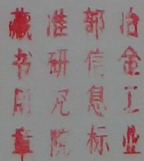 冶金工业
部信息标
准研究院
藏书用章